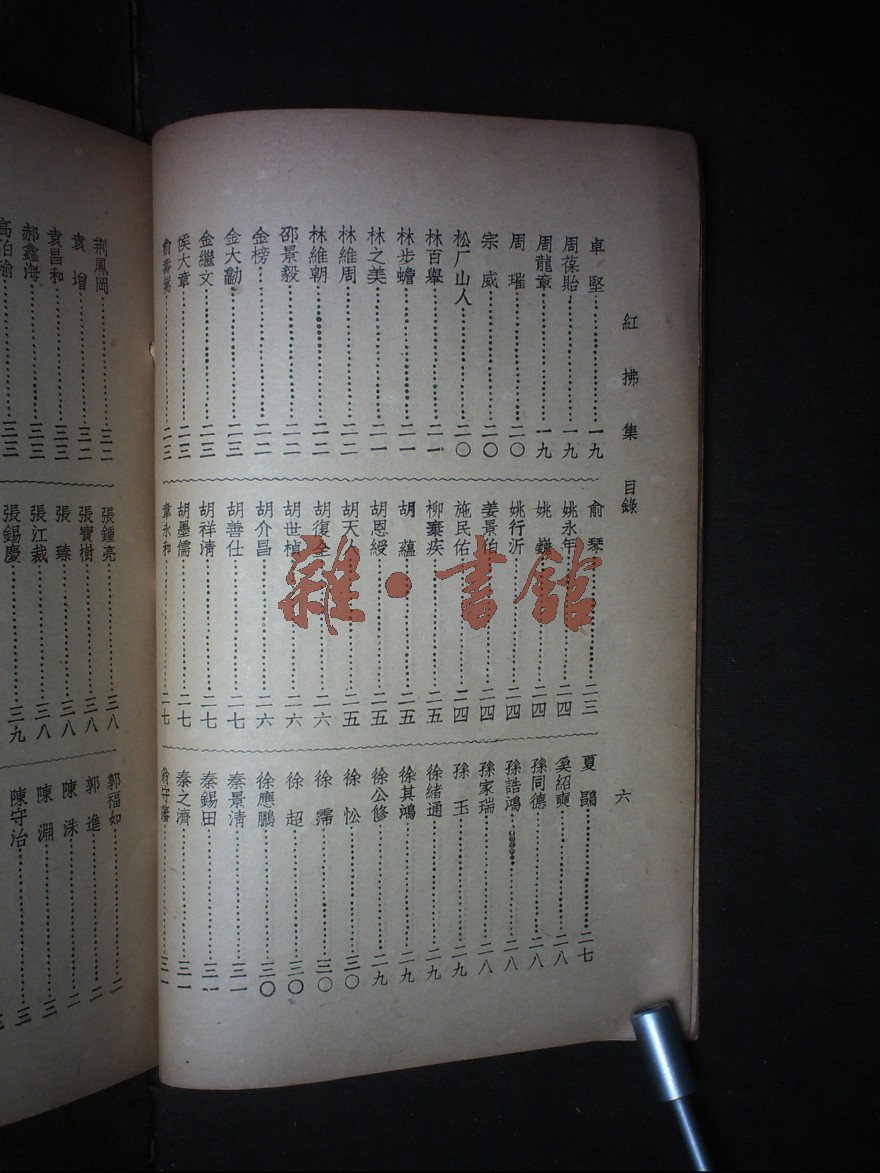 紅拂集 目錄
六
卓堅⋯⋯一九
周葆貽⋯⋯一九
周龍章⋯⋯一九
周璀⋯⋯二〇
宗威⋯⋯二〇
松厂山人⋯⋯二〇
林百舉⋯⋯二一
林步蟾⋯⋯二一
林之美⋯⋯二一
林維周⋯⋯二二
林維朝⋯⋯二二
邵景毅⋯⋯二二
金榜⋯⋯二二
金大勳⋯⋯二三
金繼文⋯⋯二三
侯大章⋯⋯二三
俞⋯⋯二三
俞琴⋯⋯二三
姚永年⋯⋯二四
姚巍⋯⋯二四
姚行沂⋯⋯二四
姜景伯⋯⋯二四
施民佑⋯⋯二四
柳棄疾⋯⋯二五
胡蘊⋯⋯二五
胡恩綬⋯⋯二五
胡天⋯⋯二五
胡復全⋯⋯二六
胡世楨⋯⋯二六
胡介昌⋯⋯二六
胡善仕⋯⋯二七
胡祥淸⋯⋯二七
胡墨儒⋯⋯二七
韋永和⋯⋯二七
夏⋯⋯二七
奚紹奭⋯⋯二八
孫同德⋯⋯二八
孫誥鴻⋯⋯二八
孫家瑞⋯⋯二八
孫玉⋯⋯二九
徐緒通⋯⋯二九
徐其鴻⋯⋯二九
徐公修⋯⋯二九
徐忪⋯⋯三〇
徐霈⋯⋯三〇
徐超⋯⋯三〇
徐應鵬⋯⋯三〇
秦景淸⋯⋯三一
秦錫田⋯⋯三一
秦之濟⋯⋯三一
翁守藩⋯⋯三一
荆鳳岡⋯⋯三二
袁增⋯⋯三二
袁昌和⋯⋯三三
郝鑫海⋯⋯三三
高伯瑜⋯⋯三三
張鍾亮⋯⋯三八
張寶樹⋯⋯三八
張臻⋯⋯三八
張江裁⋯⋯三八
張錫慶⋯⋯三九
郭福如⋯⋯二
郭進⋯⋯二
陳洙⋯⋯二
陳淵⋯⋯三
陳守治⋯⋯三
雜·書館